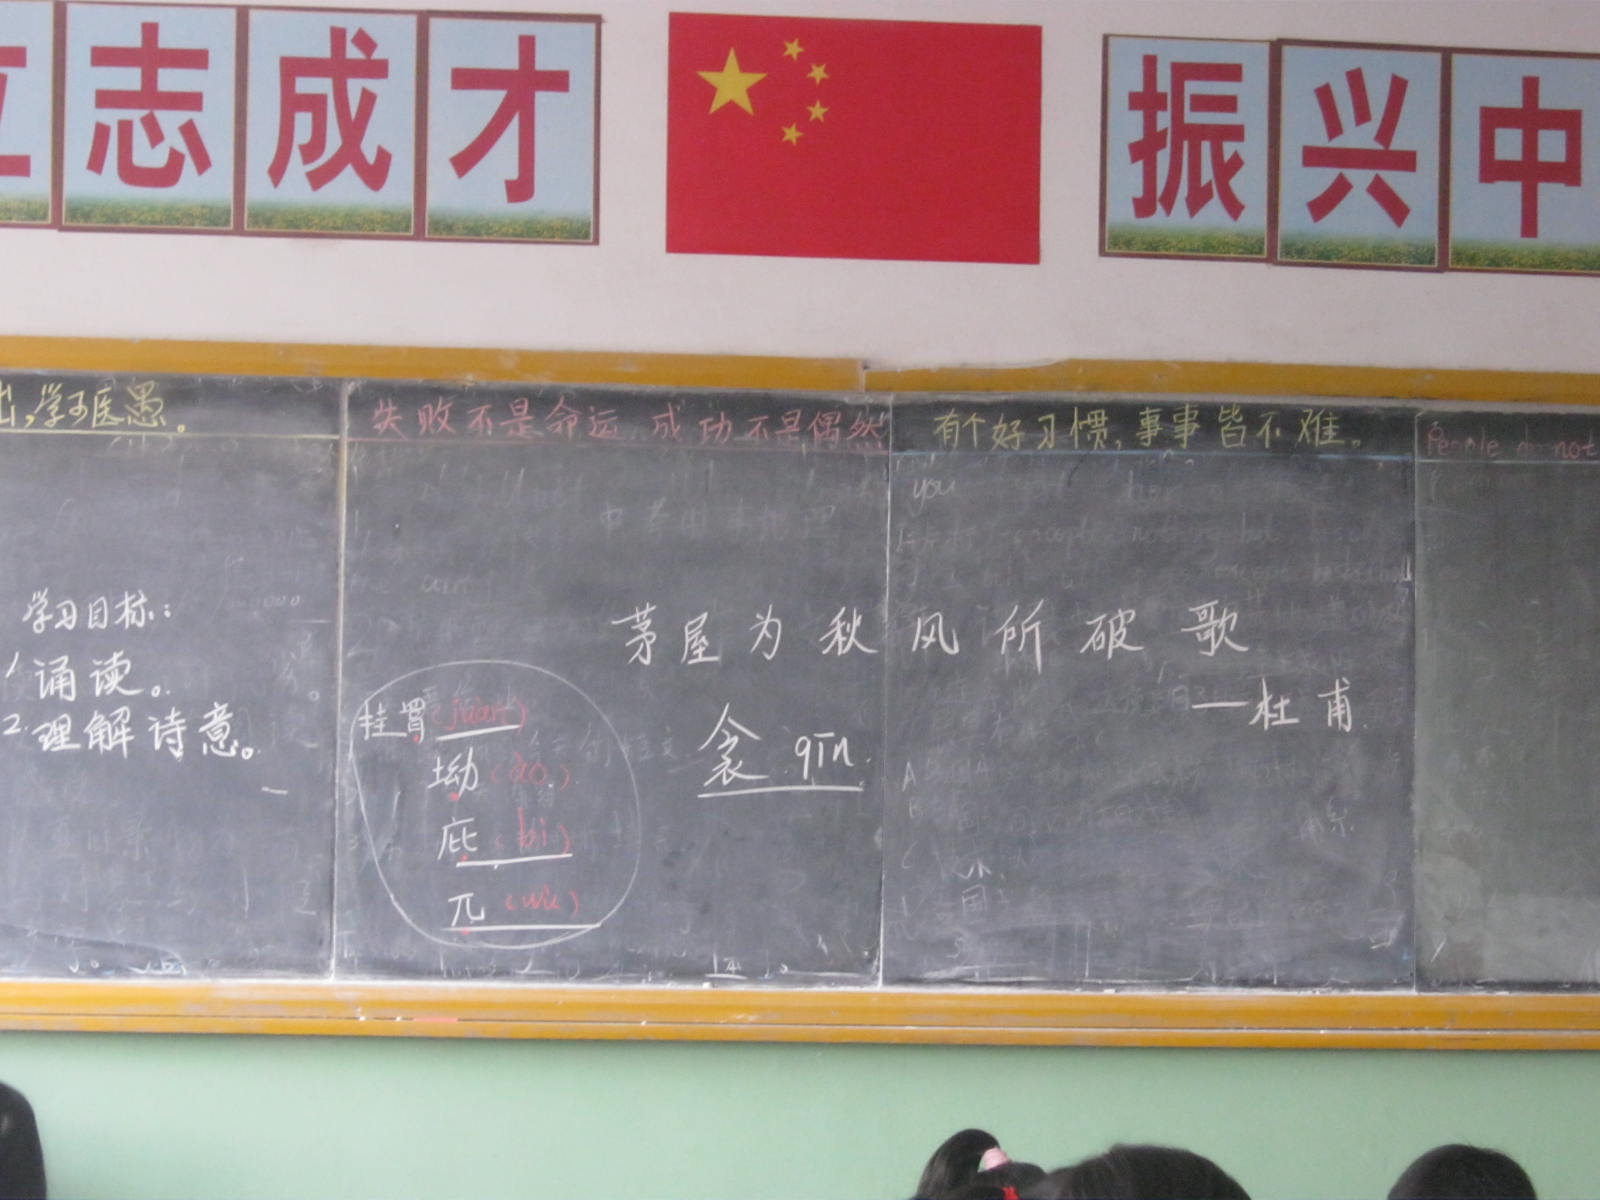 立志成才
振兴中
出,学习医愚。
失败不是命运 成功不是偶然
有个好习惯,事事皆不难。
People do not
学习目标:
1 诵读。
2.理解诗意。
茅屋为秋风所破歌
——杜甫
挂罥(juàn)
坳(ào)
庇(bì)
兀(wù)
衾 qīn